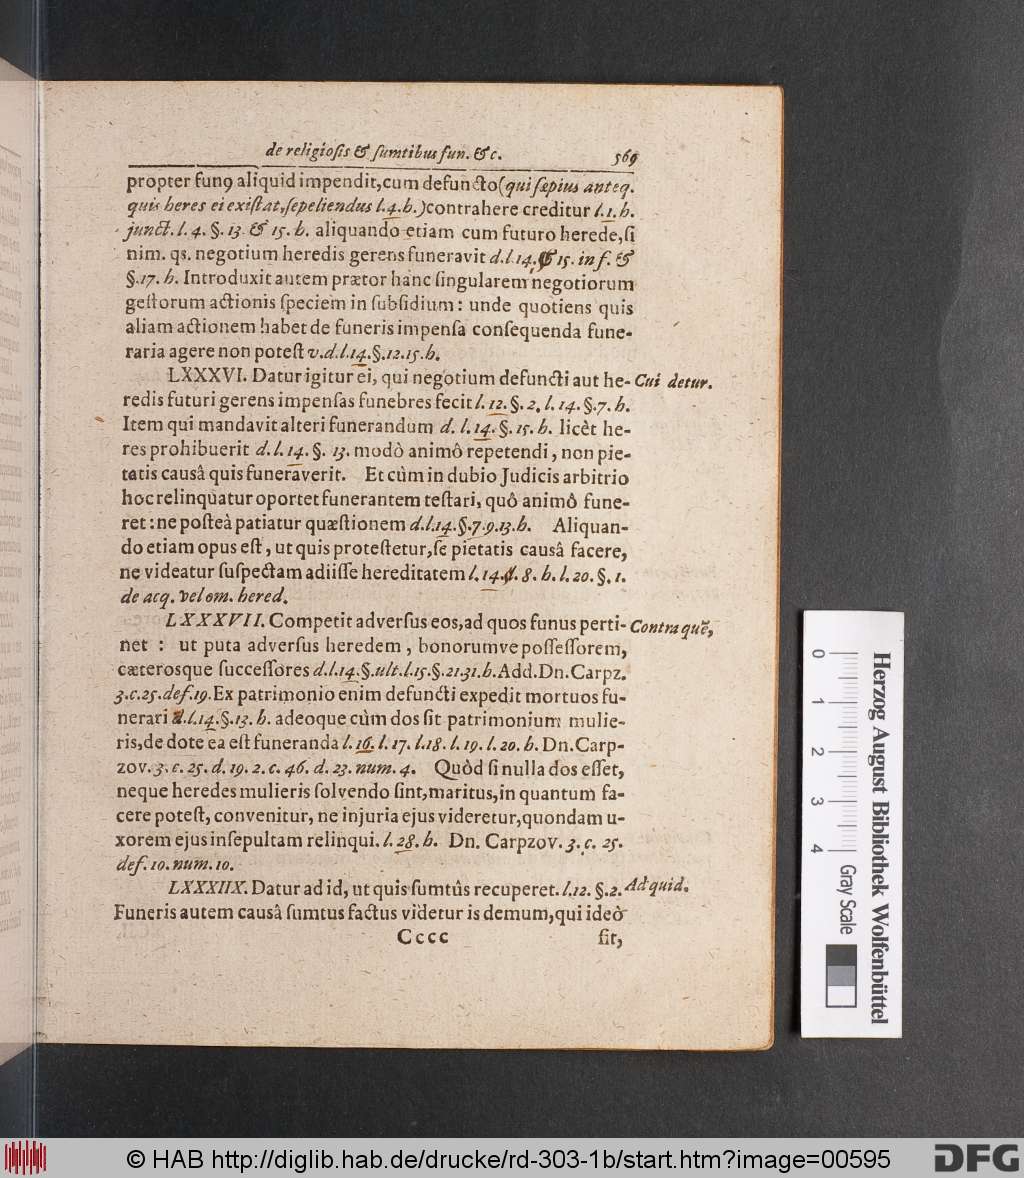 de religiosis & sumtibus fun. &c. 569
propter funꝰ aliquid impendit, cum defuncto (qui sæpius anteq.
quis heres ei existat, sepeliendus l. 4. h.) contrahere creditur l. 1. h.
junct. l. 4. §. 13. & 15. h. aliquando etiam cum futuro herede, si
nim. qs. negotium heredis gerens funeravit d. l. 14. 15. in f. &
§. 17. h. Introduxit autem prætor hanc singularem negotiorum
gestorum actionis speciem in subsidium: unde quotiens quis
aliam actionem habet de funeris impensa consequenda fune-
raria agere non potest v. d. l. 14. §. 12. 15. h.
LXXXVI. Datur igitur ei, qui negotium defuncti aut he- Cui detur.
redis futuri gerens impensas funebres fecit l. 12. §. 2. l. 14. §. 7. h.
Item qui mandavit alteri funerandum d. l. 14. §. 15. h. licèt he-
res prohibuerit d. l. 14. §. 13. modò animô repetendi, non pie-
tatis causâ quis funeraverit. Et cùm in dubio Judicis arbitrio
hoc relinquatur oportet funerantem testari, quô animô fune-
ret: ne posteà patiatur quæstionem d. l. 14. §. 7. 9. 13. h. Aliquan-
do etiam opus est, ut quis protestetur, se pietatis causâ facere,
ne videatur suspectam adiisse hereditatem l. 14. 8. h. l. 20. §. 1.
de acq. vel om. hered.
LXXXVII. Competit adversus eos, ad quos funus perti- Contra quē,
net : ut puta adversus heredem, bonorumve possessorem,
cæterosque successores d. l. 14. §. ult. l. 15. §. 21. 31. h. Add. Dn. Carpz.
3. c. 25. def. 19. Ex patrimonio enim defuncti expedit mortuos fu-
nerari d. l. 14. §. 13. h. adeoque cùm dos sit patrimonium mulie-
ris, de dote ea est funeranda l. 16. l. 17. l. 18. l. 19. l. 20. h. Dn. Carp-
zov. 3. c. 25. d. 19. 2. c. 46. d. 23. num. 4. Quòd si nulla dos esset,
neque heredes mulieris solvendo sint, maritus, in quantum fa-
cere potest, convenitur, ne injuria ejus videretur, quondam u-
xorem ejus insepultam relinqui. l. 28. h. Dn. Carpzov. 3. c. 25.
def. 10. num. 10.
LXXXIIX. Datur ad id, ut quis sumtûs recuperet. l. 12. §. 2. Ad quid.
Funeris autem causâ sumtus factus videtur is demum, qui ideò
Cccc sit,
0 1 2 3 4
Gray Scale
Herzog August Bibliothek Wolfenbüttel
© HAB http://diglib.hab.de/drucke/rd-303-1b/start.htm?image=00595
DFG